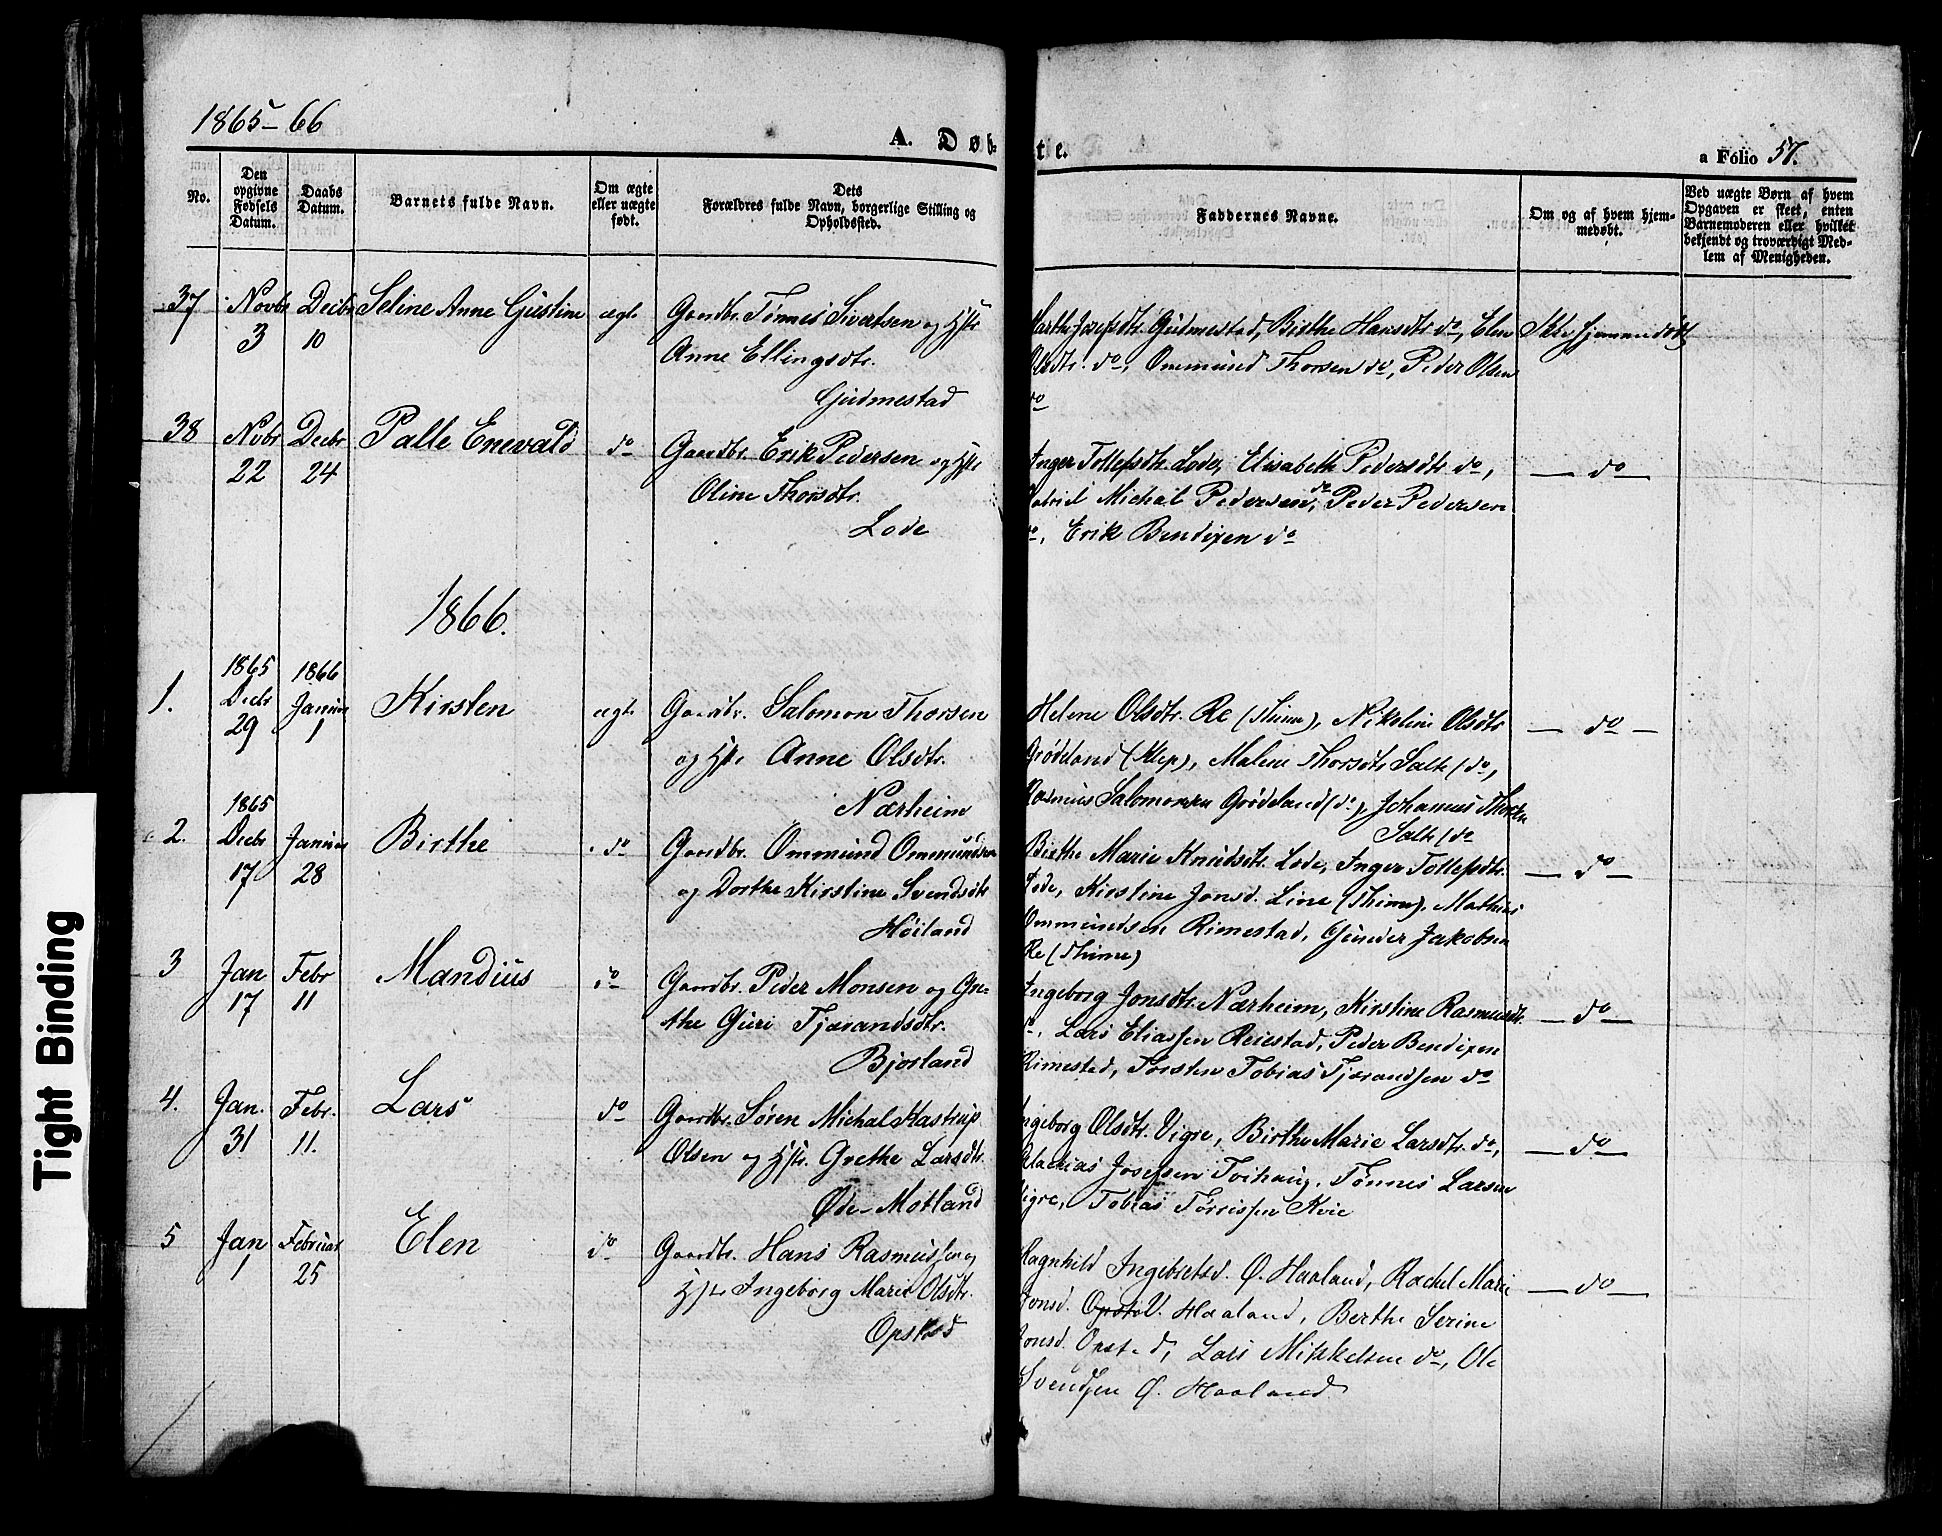 1865-66
A. Døb-
te.
a Folio 57.
No.
Den opgivne Fødsels Datum.
Daabs Datum.
Barnets fulde Navn.
Om ægte eller uægte født.
Dets Forældres fulde Navn, borgerlige Stilling og Opholdssted.
Faddernes Navne.
Om og af hvem hjemmedøbt.
Ved uægte Børn af hvem Opgaven er skeet, enten Barnemoderen eller hvilket bekjendt og troværdigt Medlem af Menigheden.
37 Novbr 3 Decbr 10 Seline Anne Gustine ægte
Gaardbr. Tønnes Sivertsen og Hstr
Anne Ellingsdtr.
Gudmestad
Marthe Josefsdtr. Gudmestad, Birthe Hansdtr do, Elen
Olsdtr. do, Ommund Thorsen do, Peder Olsen
do
Ikke hjemmedøbt
38 Novbr 22 Decbr 24 Palle Enevald do
Gaardbr. Erik Pedersen og Hstr
Oline Thorsdtr.
Lode
Inger Tollefsdtr. Lode, Elisabeth Pedersdtr do,
Gabriel Michal Pedersen do, Peder Pedersen
do, Erik Bendixen do
— do —
1866.
1. 1865 Decbr 29 1866 Januar 1 Kirsten ægte
Gaardbr. Salomon Thorsen
og Hstr Anne Olsdtr.
Nærheim
Helene Olsdtr. Re (Thime), Nikoline Olsdtr
Grødeland (Klep), Malene Thorsdtr Salte (do),
Rasmus Salomonsen Grødeland (do), Johannes Thorsen
Salte (do
— do —
2. 1865 Decbr 17 Januar 28 Birthe do
Gaardbr. Ommund Ommundsen
og Dorthe Kirstine Svendsdtr
Høiland
Birthe Marie Knudsdtr. Lode, Inger Tollefsdtr.
Lode, Kirstine Jonsd. Line (Thime), Mathias
Ommundsen Rimestad, Gunder Jakobsen
Re (Thime)
— do —
3 Jan 17 Febr 11 Mandius do
Gaardbr. Peder Monsen og Gre-
the Guri Tjærandsdtr.
Bjorland
Ingeborg Jonsdtr. Nærheim, Kirstine Rasmusdtr.
do, Lars Eliassen Reiestad, Peder Bendixen
Rimestad, Torsten Tobias Tjærandsen do
— do —
4. Jan. 31 Febr. 11. Lars do
Gaardbr. Søren Michal Kastrup
Olsen og Hstr. Grethe Larsdtr.
Øde-Motland
Ingeborg Olsdtr. Vigre, Birthe Marie Larsdtr. do,
Malachias Josefsen Tvihaug, Tønnes Larsen
Vigre, Tobias Tørrissen Kvie
— do —
5 Jan 1 Februar 25 Elen do
Gaardbr. Hans Rasmussen og
Hstr Ingeborg Marie Olsdtr.
Opstad
Ragnhild Ingebretsd. Ø. Haaland, Rachel Marie
Jonsd. V. Haaland, Berthe Serine
Jonsd. Opst d, Lars Mikkelsen do, Ole
Svendsen Ø. Haaland
— do —
Tight Binding